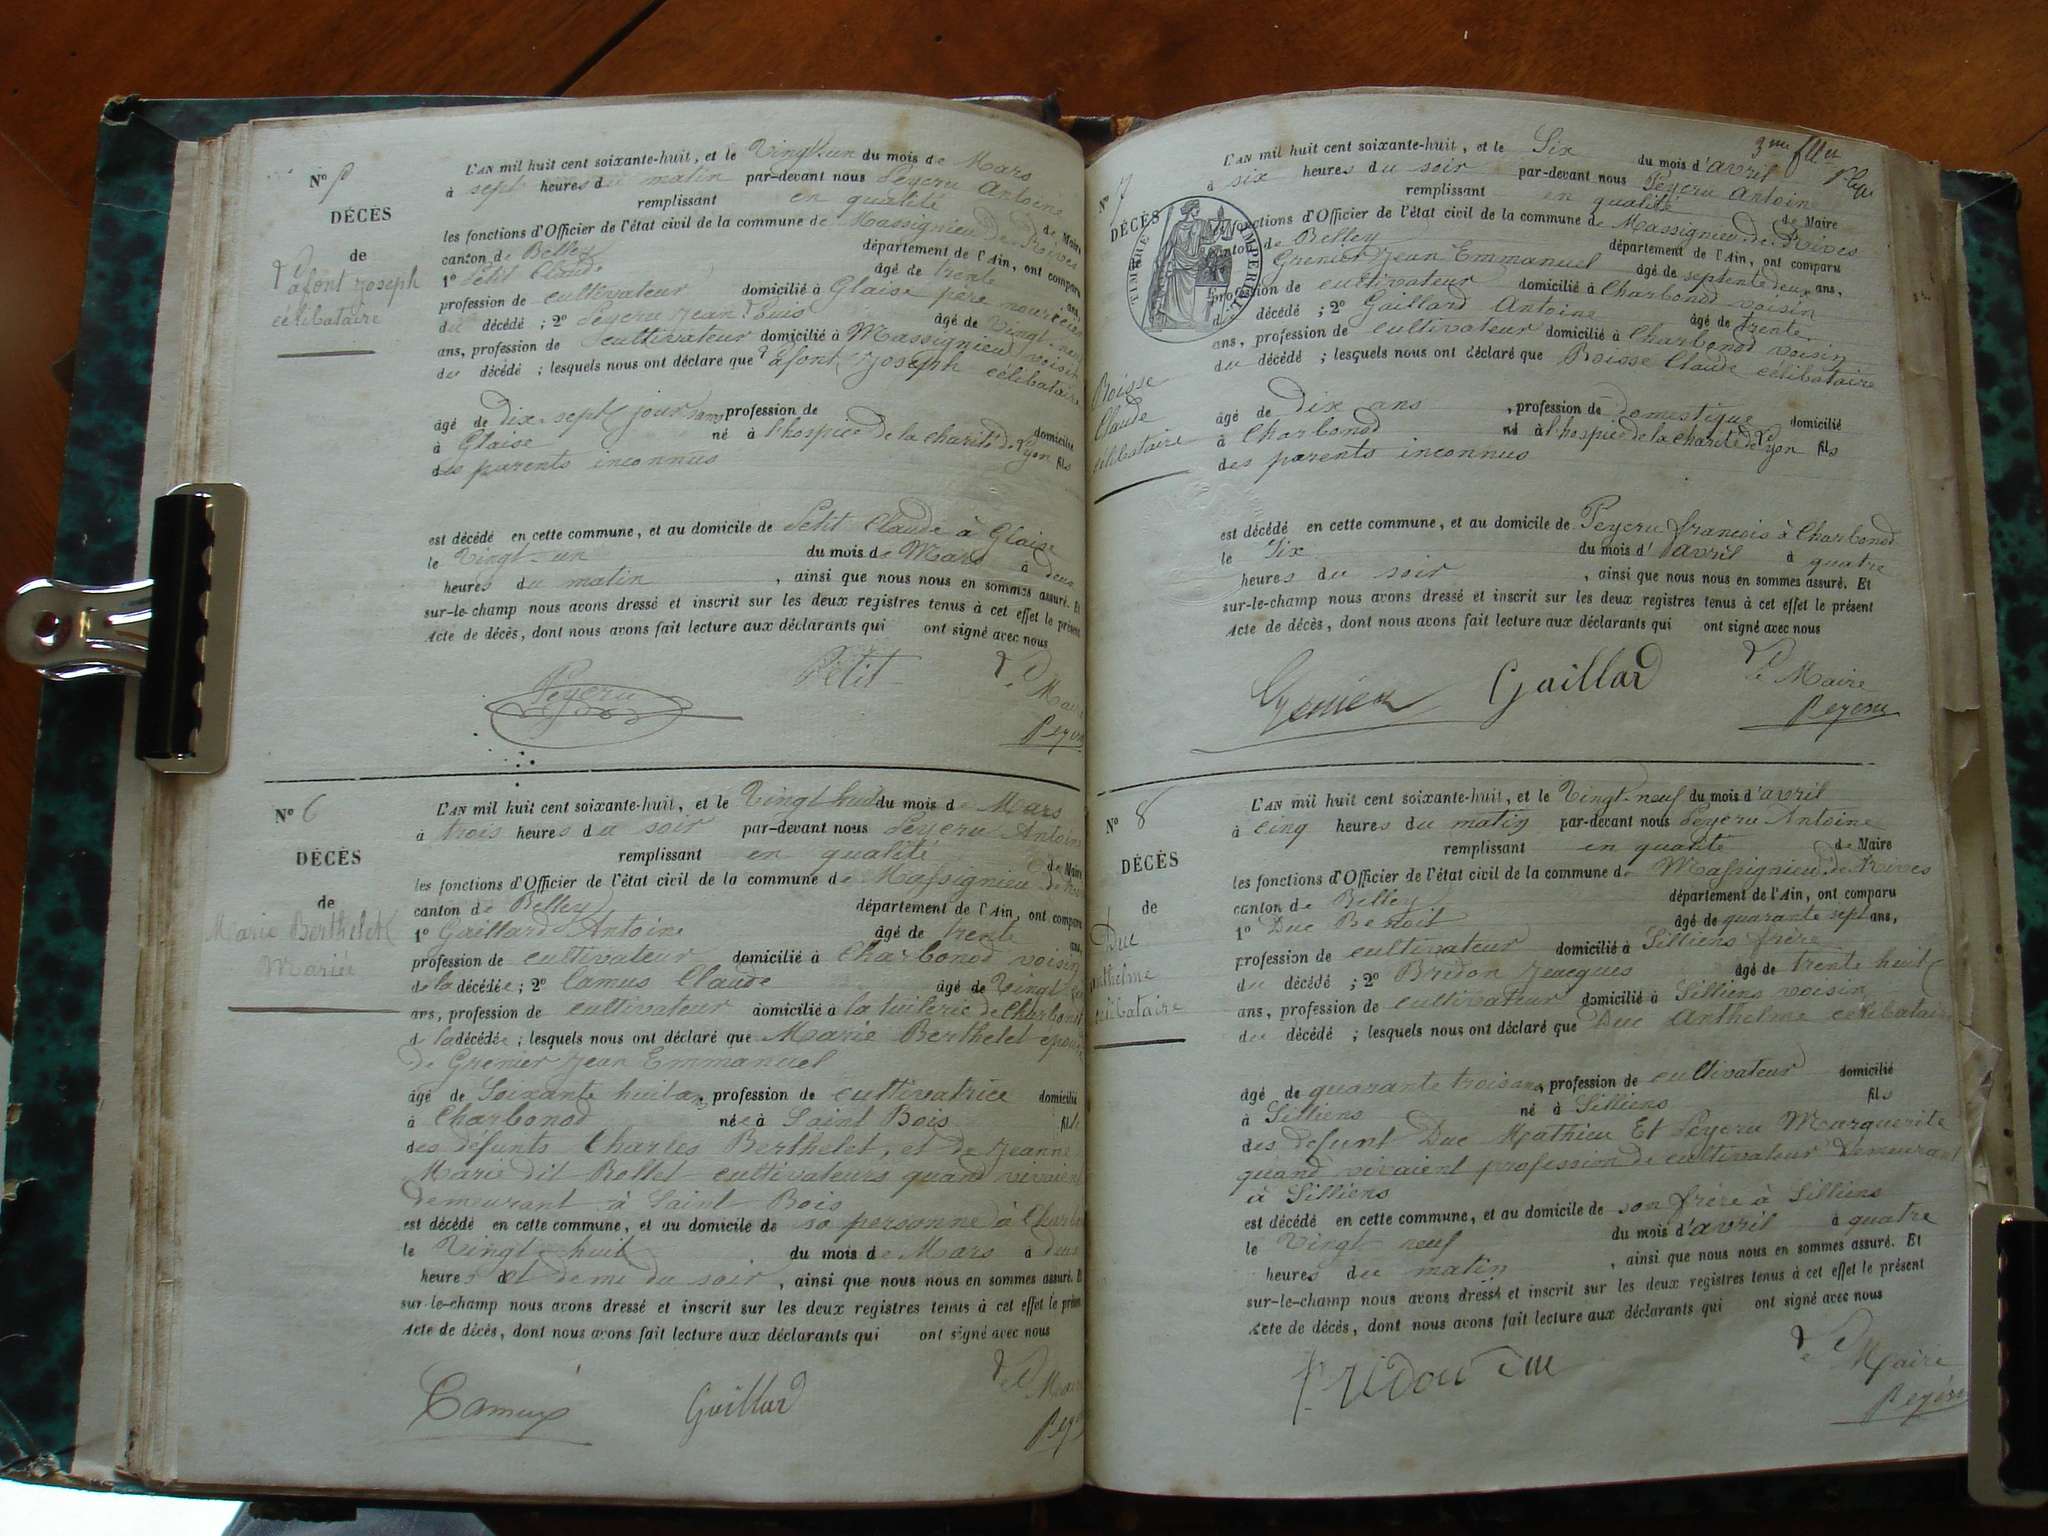 N°
DÉCÈS
de
Lafont Joseph
célibataire
L'AN mil huit cent soixante-huit, et le Vingt-un du mois de Mars
à sept heures du matin par-devant nous Peycru Antoine
remplissant en qualité de Maire
les fonctions d'Officier de l'état civil de la commune de Massignieu de Rives
canton de Belley département de l'Ain, ont comparu
1° Petit Claude âgé de trente ans,
profession de cultivateur domicilié à Glaise père nourricier
du décédé ; 2° Peycru Jean Louis âgé de Vingt-neuf
ans, profession de cultivateur domicilié à Massignieu voisin
du décédé ; lesquels nous ont déclaré que Lafont Joseph célibataire
âgé de dix-sept jours sans profession de domicilié
à Glaise né à l'hospice de la charité de Lyon fils
des parents inconnus
est décédé en cette commune, et au domicile de Petit Claude à Glaise
le Vingt-un du mois de Mars à deux
heures du matin , ainsi que nous nous en sommes assuré. Et
sur-le-champ nous avons dressé et inscrit sur les deux registres tenus à cet effet le présent
Acte de décès, dont nous avons fait lecture aux déclarants qui ont signé avec nous
Peycru Petit Le Maire
Peycru
N° 6
DÉCÈS
de
Marie Berthelet
Mariée
L'AN mil huit cent soixante-huit, et le Vingt huit du mois de Mars
à trois heures du soir par-devant nous Peycru Antoine
remplissant en qualité de Maire
les fonctions d'Officier de l'état civil de la commune de Massignieu de Rives
canton de Belley département de l'Ain, ont comparu
1° Gaillard Antoine âgé de trente ans,
profession de cultivateur domicilié à Charbonod voisin
de la décédée ; 2° Camus Claude âgé de Vingt
ans, profession de cultivateur domicilié à la tuilerie de Charbonod
d la décédée ; lesquels nous ont déclaré que Marie Berthelet épouse
de Grenier Jean Emmanuel
âgé de Soixante huit ans, profession de cultivatrice domicilié
à Charbonod née à Saint Bois fille
des défunts Charles Berthelet, et de Jeanne
Marie dit Bollet cultivateurs quand vivaient
demeurant à Saint Bois
est décédé en cette commune, et au domicile de sa personne à Charbo
le Vingt huit du mois de Mars à deux
heures et demi du soir , ainsi que nous nous en sommes assuré. Et
sur-le-champ nous avons dressé et inscrit sur les deux registres tenus à cet effet le présent
Acte de décès, dont nous avons fait lecture aux déclarants qui ont signé avec nous
Camus Gaillard Le Maire
Peycru
N° 7
DÉCÈS
TIMBRE IMPÉRIAL
Boisse
Claude
célibataire
L'AN mil huit cent soixante-huit, et le Six du mois d'avril
à six heures du soir par-devant nous Peycru Antoine
remplissant en qualité de Maire
fonctions d'Officier de l'état civil de la commune de Massignieu de Rives
canton de Belley département de l'Ain, ont comparu
Grenier Jean Emmanuel âgé de septente deux ans,
profession de cultivateur domicilié à Charbonod voisin
du décédé ; 2° Gaillard Antoine âgé de trente
ans, profession de cultivateur domicilié à Charbonod voisin
du décédé ; lesquels nous ont déclaré que Boisse Claude célibataire
âgé de dix ans , profession de domestique domicilié
à Charbonod né à l'hospice de la charité de Lyon fils
des parents inconnus
est décédé en cette commune, et au domicile de Peycru françois à Charbonod
le Six du mois d'avril à quatre
heures du soir , ainsi que nous nous en sommes assuré. Et
sur-le-champ nous avons dressé et inscrit sur les deux registres tenus à cet effet le présent
Acte de décès, dont nous avons fait lecture aux déclarants qui ont signé avec nous
Grenier Gaillard Le Maire
Peycru
N° 8
DÉCÈS
de
Duc
anthelme
célibataire
L'AN mil huit cent soixante-huit, et le Vingt-neuf du mois d'avril
à cinq heures du matin par-devant nous Peycru Antoine
remplissant en qualité de Maire
les fonctions d'Officier de l'état civil de la commune de Massignieu de Rives
canton de Belley département de l'Ain, ont comparu
1° Duc Benoit âgé de quarante sept ans,
profession de cultivateur domicilié à Silliens frère
du décédé ; 2° Bridon Jeacques âgé de trente huit
ans, profession de cultivateur domicilié à Silliens voisin
du décédé ; lesquels nous ont déclaré que Duc Anthelme célibataire
âgé de quarante trois ans, profession de cultivateur domicilié
à Silliens né à Silliens fils
des défunt Duc Mathieu Et Peycru Marguerite
quand vivaient profession de cultivateur demeurant
à Silliens
est décédé en cette commune, et au domicile de son frère à Silliens
le Vingt neuf du mois d'avril à quatre
heures du matin , ainsi que nous nous en sommes assuré. Et
sur-le-champ nous avons dressé et inscrit sur les deux registres tenus à cet effet le présent
Acte de décès, dont nous avons fait lecture aux déclarants qui ont signé avec nous
Le Maire
Peycru